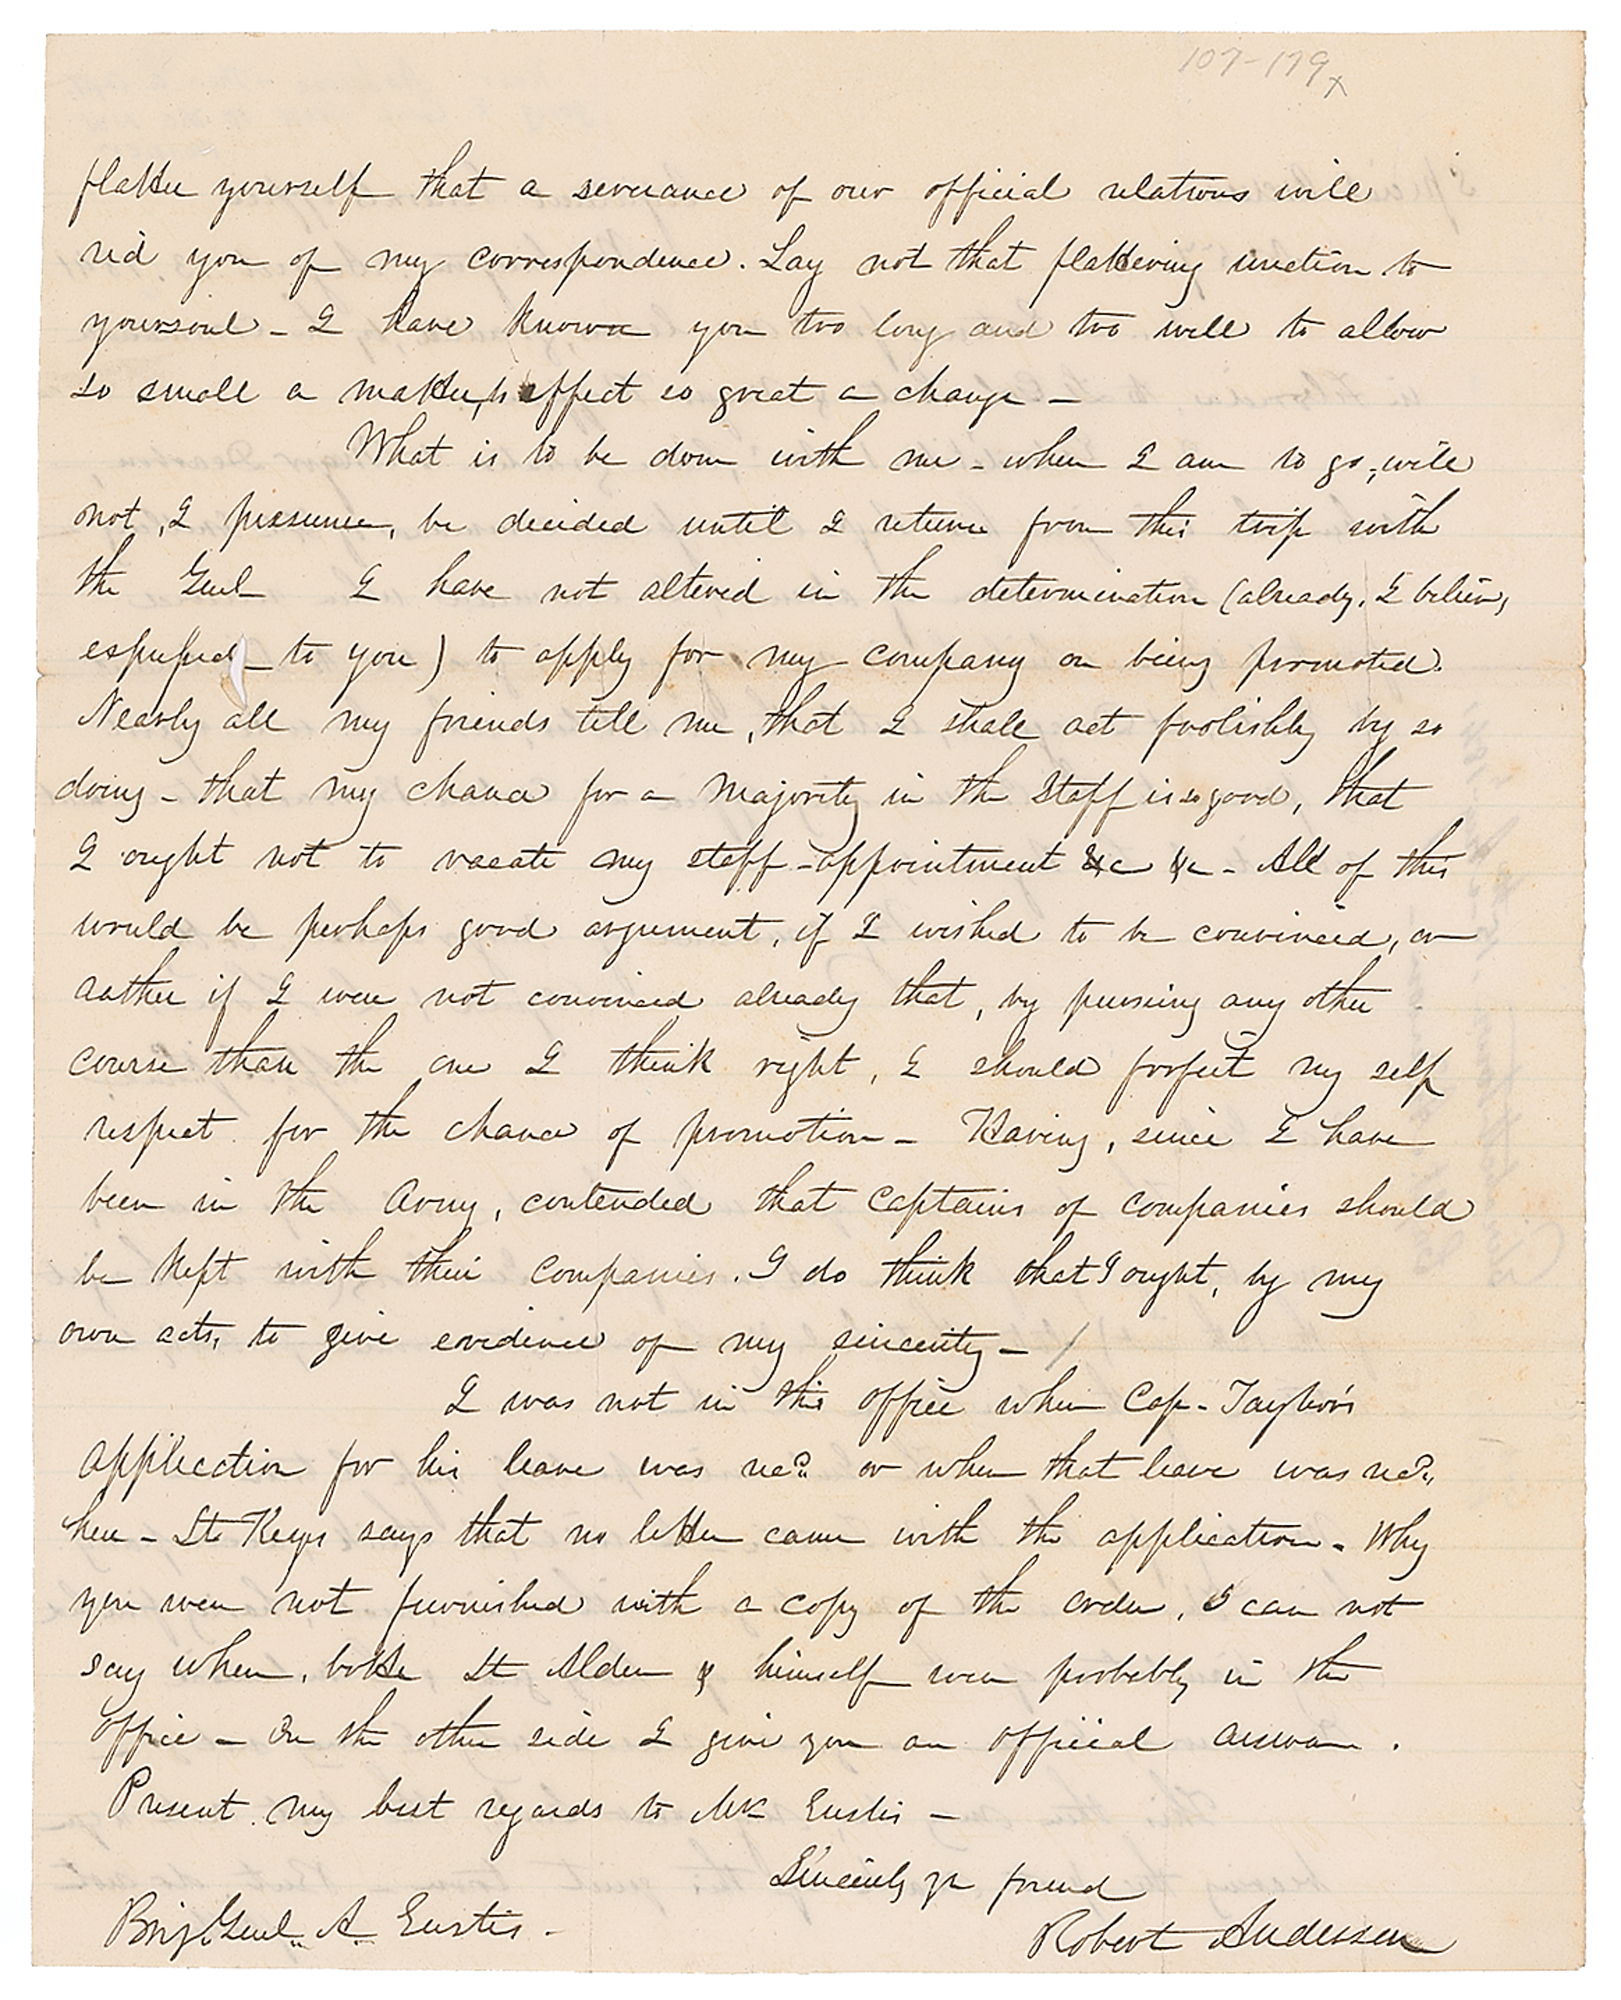 107-179x
flatter yourself that a severance of our official relations will
rid you of my correspondence. Lay not that flattering unction to
yoursoul - I have known you too long and too well to allow
so small a matter, to effect so great a change -
What is to be done with me - when I am to go, will
not, I presume, be decided until I return from this trip with
the Genl I have not altered in the determination (already, I believe,
expressed to you) to apply for my company on being promoted.
Nearly all my friends tell me, that I shall act foolishly by so
doing - that my chance for a Majority in the Staff is so good, that
I ought not to vacate my staff-appointment &c &c - All of this
would be perhaps good argument, if I wished to be convinced, or
rather if I were not convinced already that, by pursuing any other
course than the one I think right, I should forfeit my self
respect for the chance of promotion - Having, since I have
been in the Army, contended that Captains of Companies should
be kept with their Companies. I do think that I ought, by my
own acts, to give evidence of my sincerity - /
I was not in the office when Cap- Taylor's
application for his leave was recd. or when that leave was recd.
here - Lt Keyes says that no letter came with the application - Why
you were not furnished with a copy of the order, I can not
say when, both Lt Alden & himself were probably in the
office - On the other side I give you an official answer.
Present my best regards to Mrs Eustis -
Sincerely yr friend
Brig. Genl. A. Eustis -
Robert Anderson